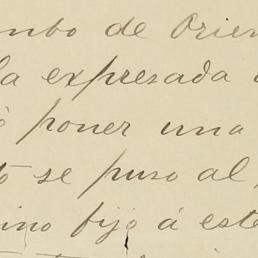 umbo de Orien
la expresada
ó poner una
to se puso al
ino fijo á este